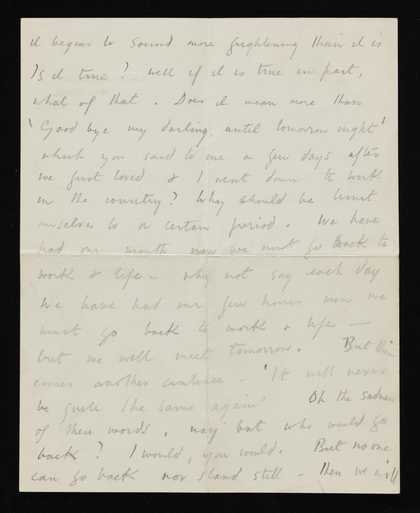 it begins to sound more frightening than it is
Is it true? well if it is true in part,
what of that. Does it mean more than
'Good bye my darling, until tomorrow night'
which you said to me a few days after
we first loved & I went down to work
in the country? Why should we limit
ourselves to a certain period. We have
had our month now we must go back to
work & life – why not say each day
We have had our few hours now we
must go back to work & life —
but we will meet tomorrow. But then
comes another sentence – 'It will never
be quite the same again' Oh the sadness
of these words, nay but who would go
back? I would, you would. But no one
can go back nor stand still – Then we will